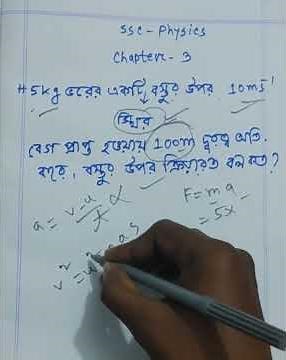 SSC - Physics
Chapter - 3
# 5kg ভরের একটি বস্তুর উপর 10ms⁻¹
স্থির
বেগ প্রাপ্ত হওয়ায় 100m দূরত্ব অতি
বস্তুর উপর ক্রিয়ারত বল কত?
a = v-u/t
F = ma
= 5x